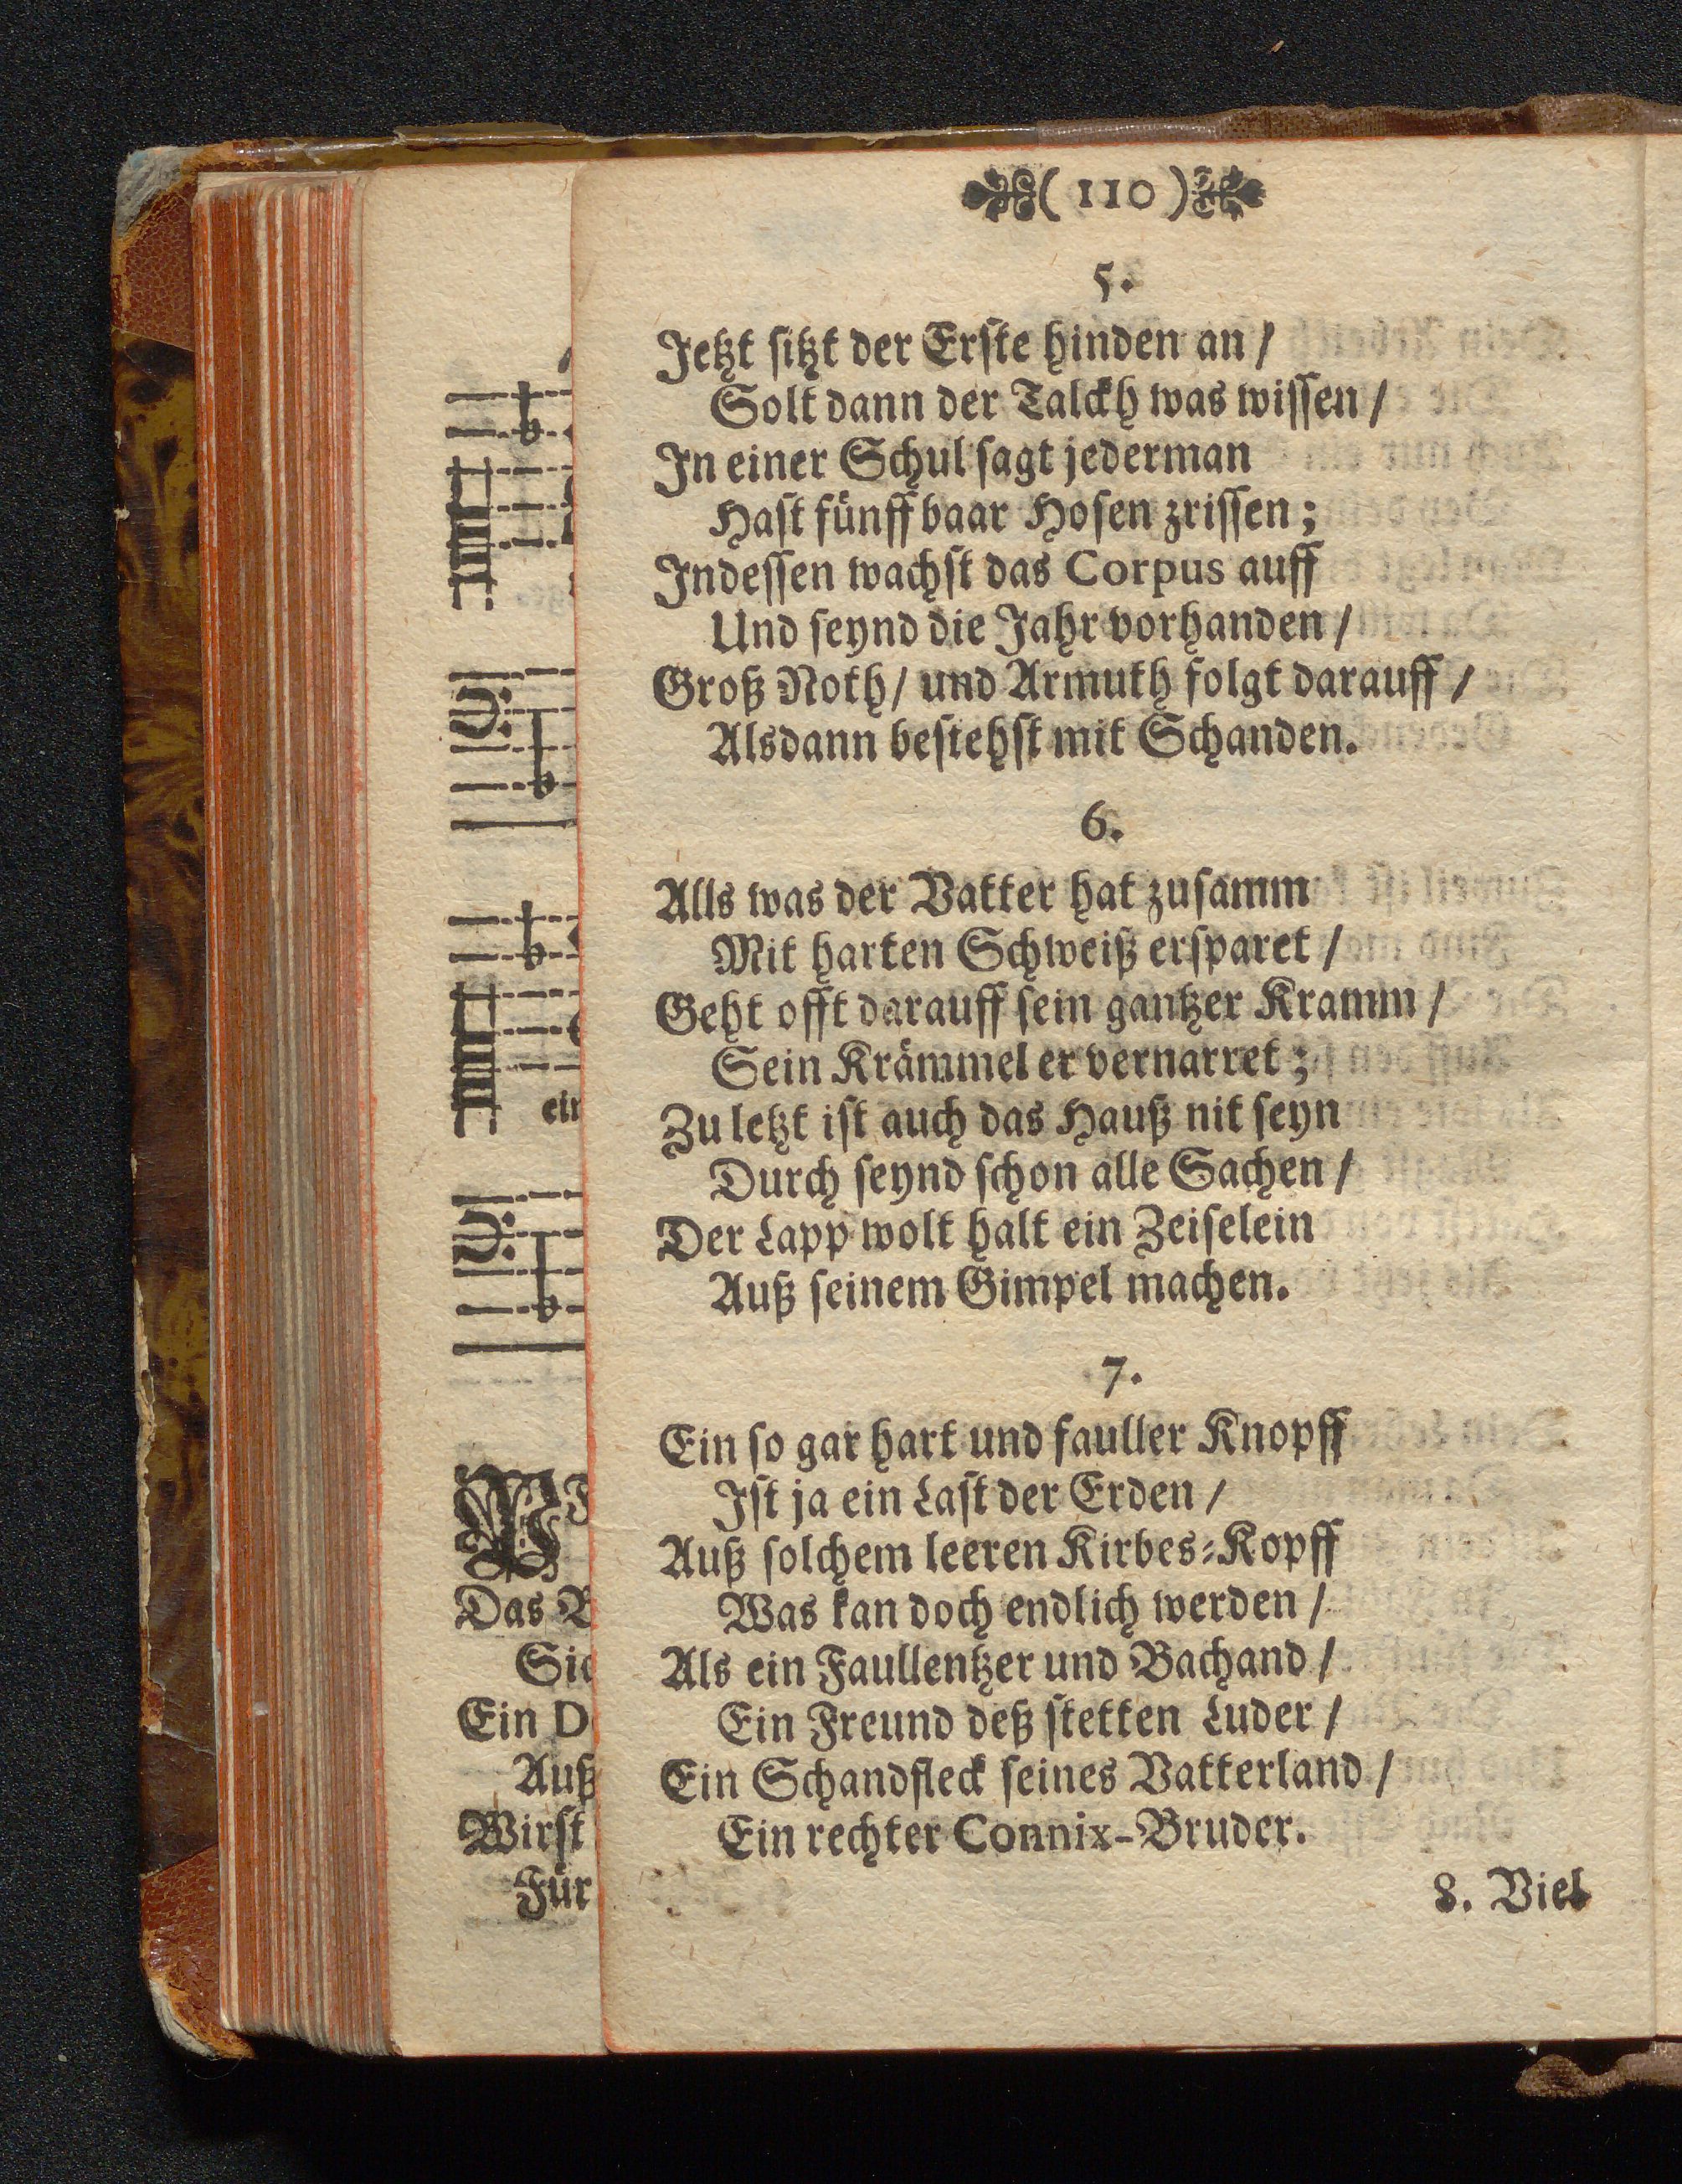 ( 110 )
5.
Jetzt sitzt der Erste hinden an /
Solt dann der Talckh was wissen /
In einer Schul sagt jederman
Hast fünff baar Hosen zrissen ;
Indessen wachst das Corpus auff
Und seynd die Jahr vorhanden /
Groß Noth / und Armuth folgt darauff /
Alsdann bestehst mit Schanden.
6.
Alls was der Vatter hat zusamm
Mit harten Schweiß ersparet /
Geht offt darauff sein gantzer Kramm /
Sein Krämmel er vernarret ;
Zu letzt ist auch das Hauß nit seyn
Durch seynd schon alle Sachen /
Der Lapp wolt halt ein Zeiselein
Auß seinem Gimpel machen.
7.
Ein so gar hart und fauller Knopff
Ist ja ein Last der Erden /
Auß solchem leeren Kirbes-Kopff
Was kan doch endlich werden /
Als ein Faullentzer und Bachand /
Ein Freund deß stetten Luder /
Ein Schandfleck seines Vatterland /
Ein rechter Connix-Bruder.
8. Viel
ein
Das
Ein
Auß
Wirst
Für